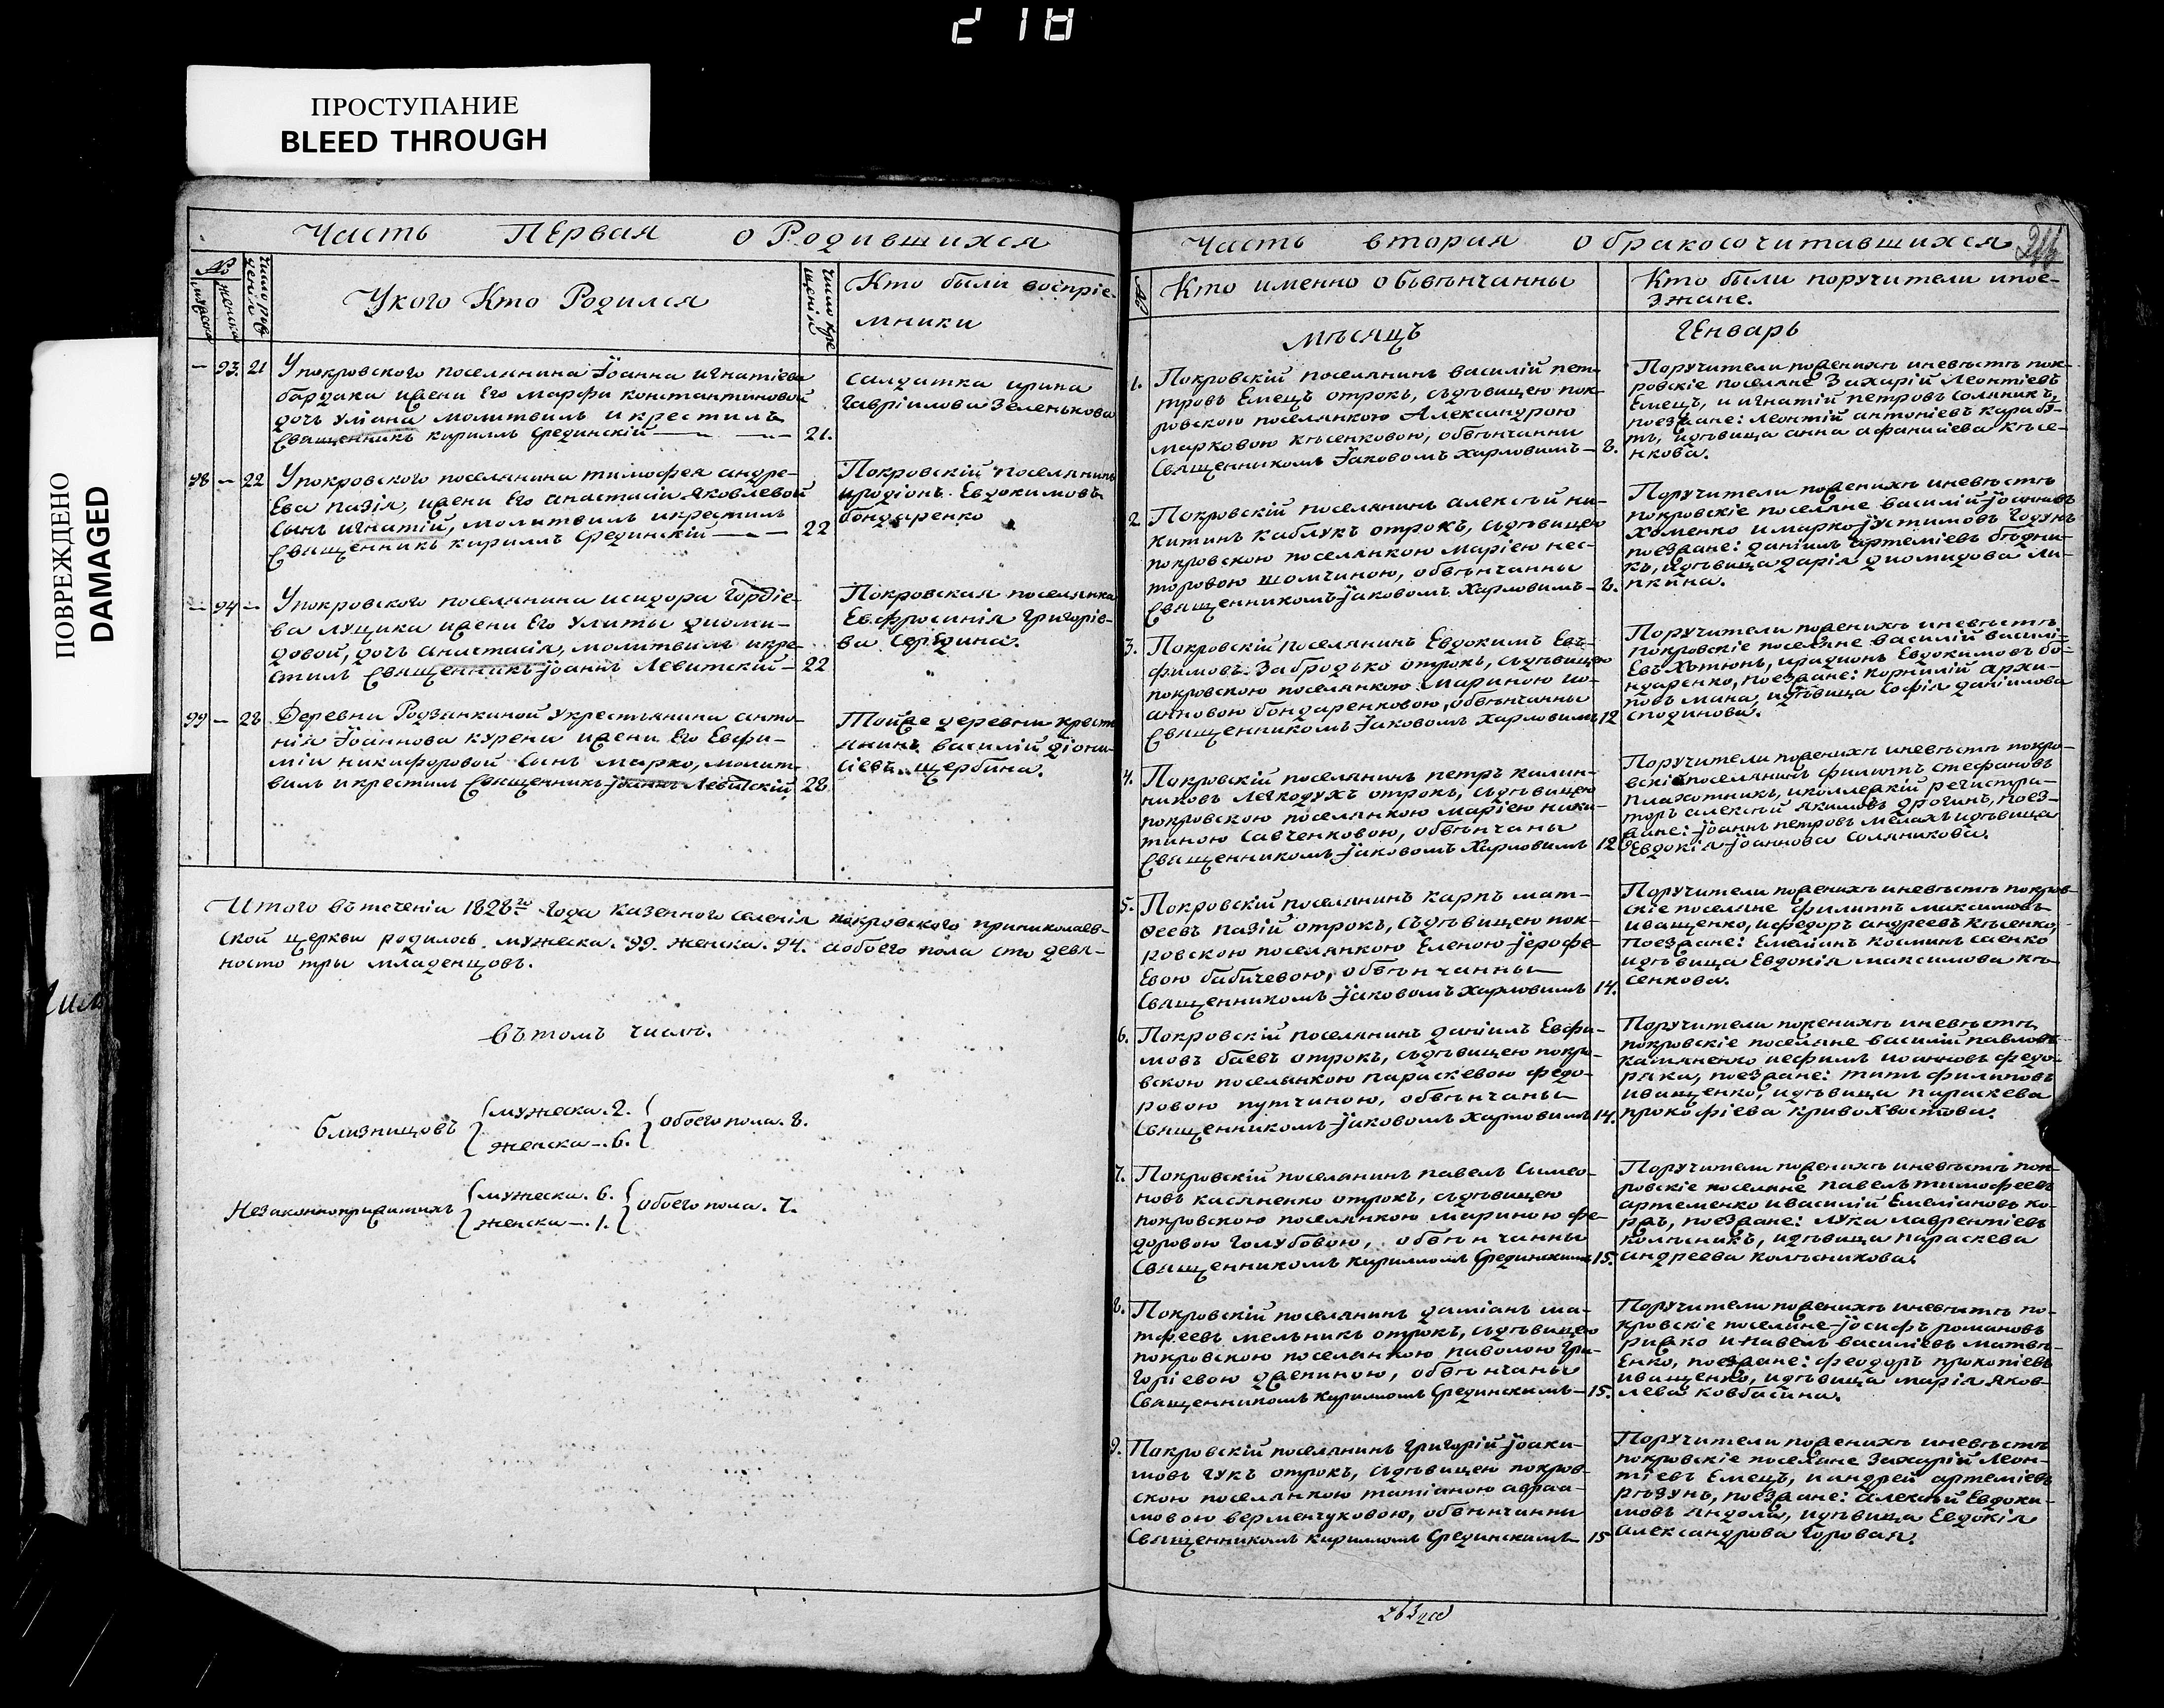 218
ПРОСТУПАНИЕ
BLEED THROUGH
ПОВРЕЖДЕНО
DAMAGED
Часть ПЕрвая о Родившихся
№
Укого Кто Родился
Кто были воспріе-
мники
— 93. 21 Упокровского поселянина Іоанна игнатіева
бардака ижени Его марфи константиновой
дочь уліана молитвилъ и крестилъ
Священникъ кирилъ Срединскій — 21.
Салдатка ирина
гавріилова Зеленькова
98 — 22 Упокровского поселянина тимофея андре-
Ева пазія, ижени Его анастасіи яковлевой
Сынъ игнатій, молитвилъ икрестилъ
Священникъ кирилъ Срединскій — 22
Покровскій поселянинъ
иродіонъ Евдокимовъ
бондаренко
— 94 — Упокровского поселянина исидора Гордіе-
ва лущика ижени Его улиты диоми-
довой, дочь анастасія, молитвилъ икре-
стилъ Священникъ іоаннъ Левитскій — 22
Покровская поселянка
Евфросинія григоріе-
ва Середина.
99 — 28 Деревни Родзянкиной укрестьянина анто-
нія Іоаннова курени ижени Его Евфи-
міи никифоровой Сынъ марко, молит-
вилъ икрестилъ Священникъ іоаннъ Левитскій 28
Тойже деревни крест
янинъ василій діони-
сіевъ щербина.
Итого втеченіи 1828го года казенного селенія покровского приниколаев-
ской церкви родилось мужеска. 99. женска. 94. аобоего пола сто девя-
носто три младенцовъ.
вътомъ числѣ.
близницовъ
мужеска. 2.
женска —. 6.
обоего пола. 8.
Незаконноприжитихъ
мужеска. 6.
женска —. 1.
обоего пола. 7.
Часть вторая о бракосочитавшихся
№
Кто именно обьвѣнчанны
Кто были поручители ипое-
зжане.
мѣсяцъ
гЕнварь
1. Покровскій поселянинъ василій пет-
тровъ Емецъ отрокъ, съдѣвицею пок-
ровскою поселянкою Александрою
марковою кѣсенковою, обвѣнчанни
Священникомъ Іаковомъ Харловимъ — 8.
Поручители поженихѣ иневѣстѣ пок-
ровскіе поселяне Захарій Леонтіевъ
Емецъ, и игнатій петровъ Соляникъ,
поезжане: леонтій антоніевъ карабу-
тъ, идѣвица анна афанасіева кѣсе-
нкова.
2 Покровскій поселянинъ алексѣй ни-
китинъ каблукъ отрокъ, съдѣвицею
покровскою поселянкою маріею нес-
торовою шомчиною, обвѣнчанны
Священникомъ Іаковомъ Харловимъ — 8.
Поручители поженихѣ иневѣстѣ
покровскіе поселяне василій іоанновъ
Хоменко имарко іустимовъ годунъ
поезжане: даніилъ артеміевъ бѣдни-
къ, идѣвица дарія диомидова ли-
пкина.
3. Покровскій поселянинъ Евдокимъ Евъ-
фимовъ Забродько отрокъ, съдѣвицею
покровскою поселянкою мариною ио-
анновою бондаренковою, обвѣнчанны
Священникомъ Іаковомъ Харловимъ 12
Поручители поженихѣ иневѣстѣ
покровскіе поселяне василій василі-
Евъ Хѣтюнъ, иридионъ Евдокимовъ бо-
ндаренко, поезжане: корнилій архи-
повъ мана, идѣвица Софія даніилова
сподинова.
4. Покровскій поселянинъ петръ калин-
никовъ легкодухъ отрокъ, съдѣвицею
покровскою поселянкою маріею ники-
тиною Савченковою, обвѣнчаны
Священникомъ Іаковомъ Харловимъ 12
Поручители поженихѣ иневѣстѣ покро-
вскіе поселянинъ филиппъ стефановъ
плахотникъ, иколлежкій регистра-
торъ алексѣй якимовъ дрогинъ, поез-
жане: іоаннъ петровъ мелахъ идѣвица
Евдокія іоаннова Соляникова.
5. Покровскій поселянинъ карпъ мат-
ѳеевъ пазій отрокъ, съдѣвицею пок-
ровскою поселянкою Еленою іерофе-
Евою бабичевою, обвѣнчанны
Священникомъ Іаковомъ Харловимъ 14.
Поручители поженихѣ иневѣстѣ покров-
скіе поселяне филиппъ максимовъ
иващенко, ифедоръ андреевъ кѣсенко,
поезжане: Емеліянъ косминъ саенко
идѣвица Евдокія максимова кѣ-
сенкова.
6. Покровскій поселянинъ даніилъ Евфи-
мовъ баевъ отрокъ, съдѣвицею покро-
вскою поселянкою параскевою федо-
ровою путчиною, обвѣнчаны
Священникомъ Іаковомъ Харловимъ 14.
Поручители поженихѣ иневѣстѣ
покровскіе поселяне василій павловъ
касяненко иефимъ иоанновъ федо-
ряка, поезжане: титъ филиповъ
иващенко, идѣвица параскева
прокофіева кривохвостова.
7. Покровскій поселянинъ павелъ Симео-
новъ касяненко отрокъ, съдѣвицею
покровскою поселянкою мариною фе-
доровою голубовою, обвѣнчанны
Священникомъ кириломъ Срединскимъ 15.
Поручители поженихѣ иневѣстѣ пок-
ровскіе поселяне павелъ тимофеевъ
артеменко ивасилій Емеліановъ ко-
ржъ, поезжане: лука лаврентіевъ
колѣсникъ, идѣвица параскева
андреева колѣсникова.
8. Покровскій поселянинъ даміанъ ма-
тфеевъ мельникъ отрокъ, съдѣвицею
покровскою поселянкою паволою гри-
горіевою дрепиною, обвѣнчаны
Священникомъ кириломъ Срединскимъ — 15.
Поручители поженихѣ иневѣстѣ по-
кровскіе поселяне іосифъ романовъ
рижко ипавелъ василіевъ матвѣ-
Енко, поезжане: феодоръ прокопіевъ
иващенко, идѣвица марія яков-
лева ковбасина.
9. Покровскій поселянинъ григорій іоаки-
мовъ гукъ отрокъ, съдѣвицею покров-
скою поселянкою татіаною авраа-
мовою верменчуковою, обвѣнчанни
Священникомъ кириломъ Срединскимъ — 15
Поручители поженихѣ иневѣстѣ
покровскіе поселяне Захарій Леон-
тіевъ Емецъ, иандрей артеміевъ
рѣзунъ, поезжане: алексѣй Евдоки-
мовъ яндола, идѣвица Евдокія
александрова горовая.